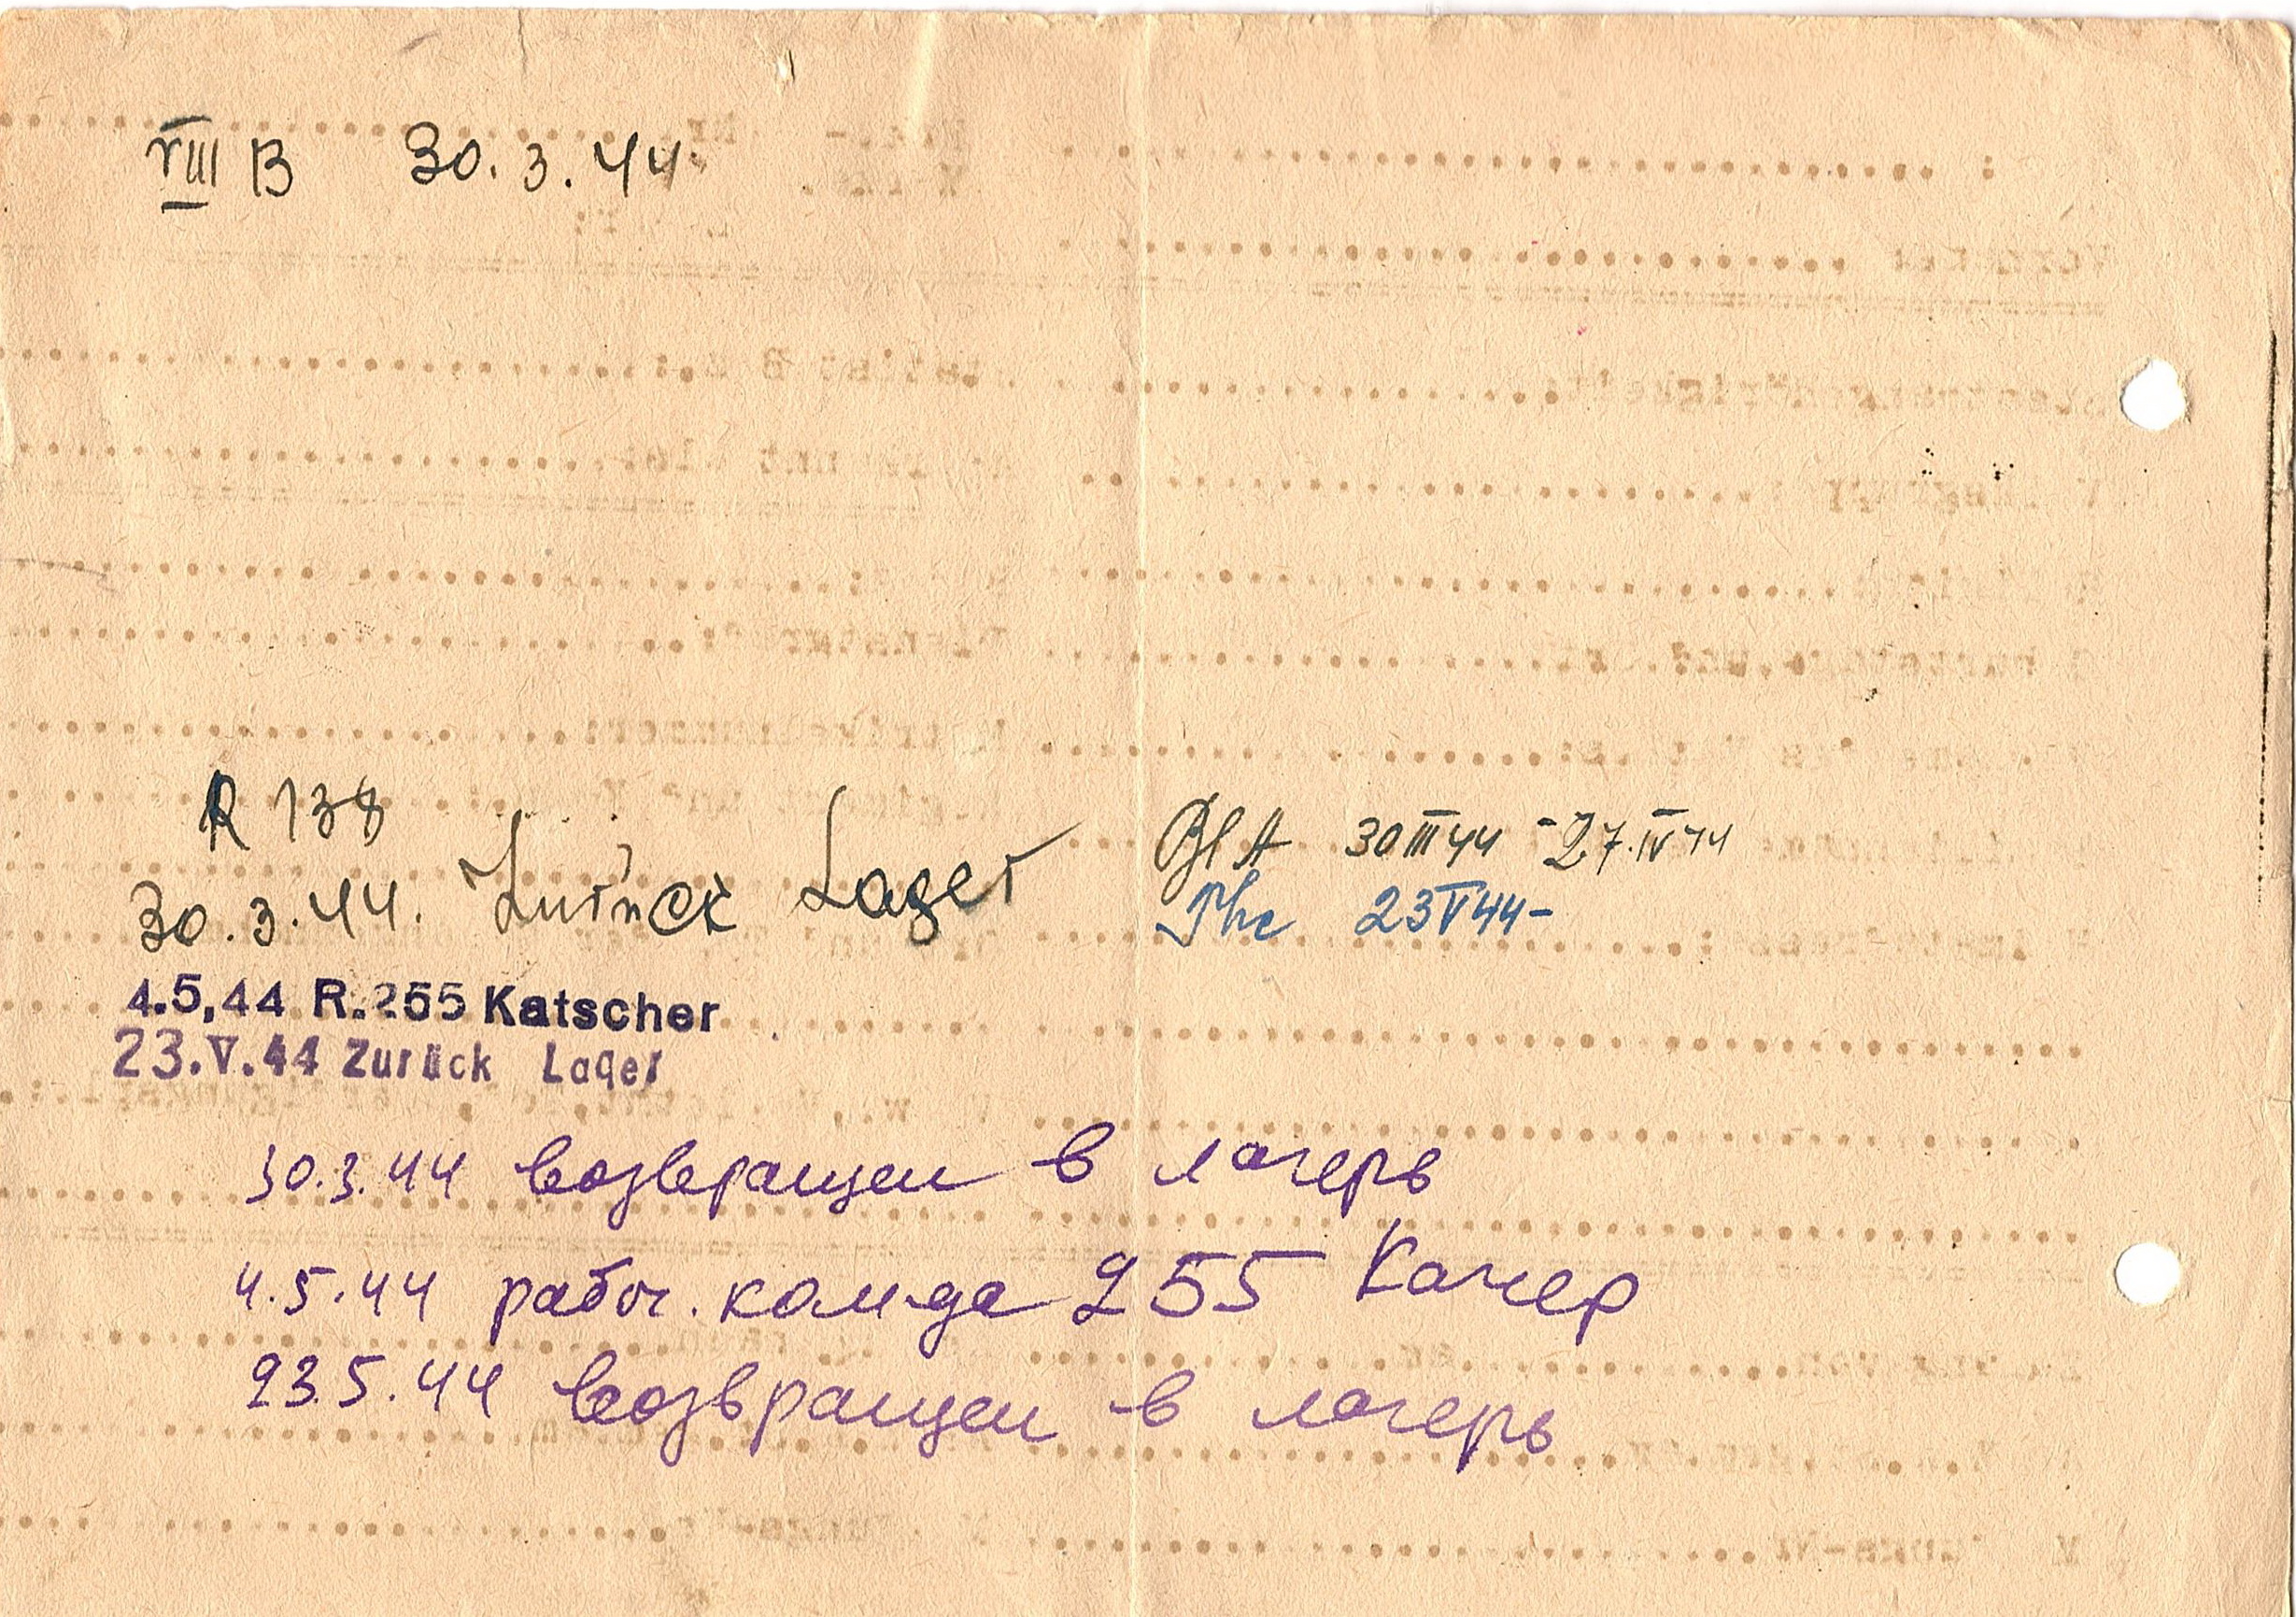 VIII B 30.3.44
R 138
30.3.44. Zurück Lager
30 III 44 - 27.IV 44
23 V 44 -
4.5,44 R.255 Katscher
23.V.44 Zurück Lager
30.3.44 возвращен в лагерь
4.5.44 рабоч. ком-да 255 Качер
23.5.44 возвращен в лагерь